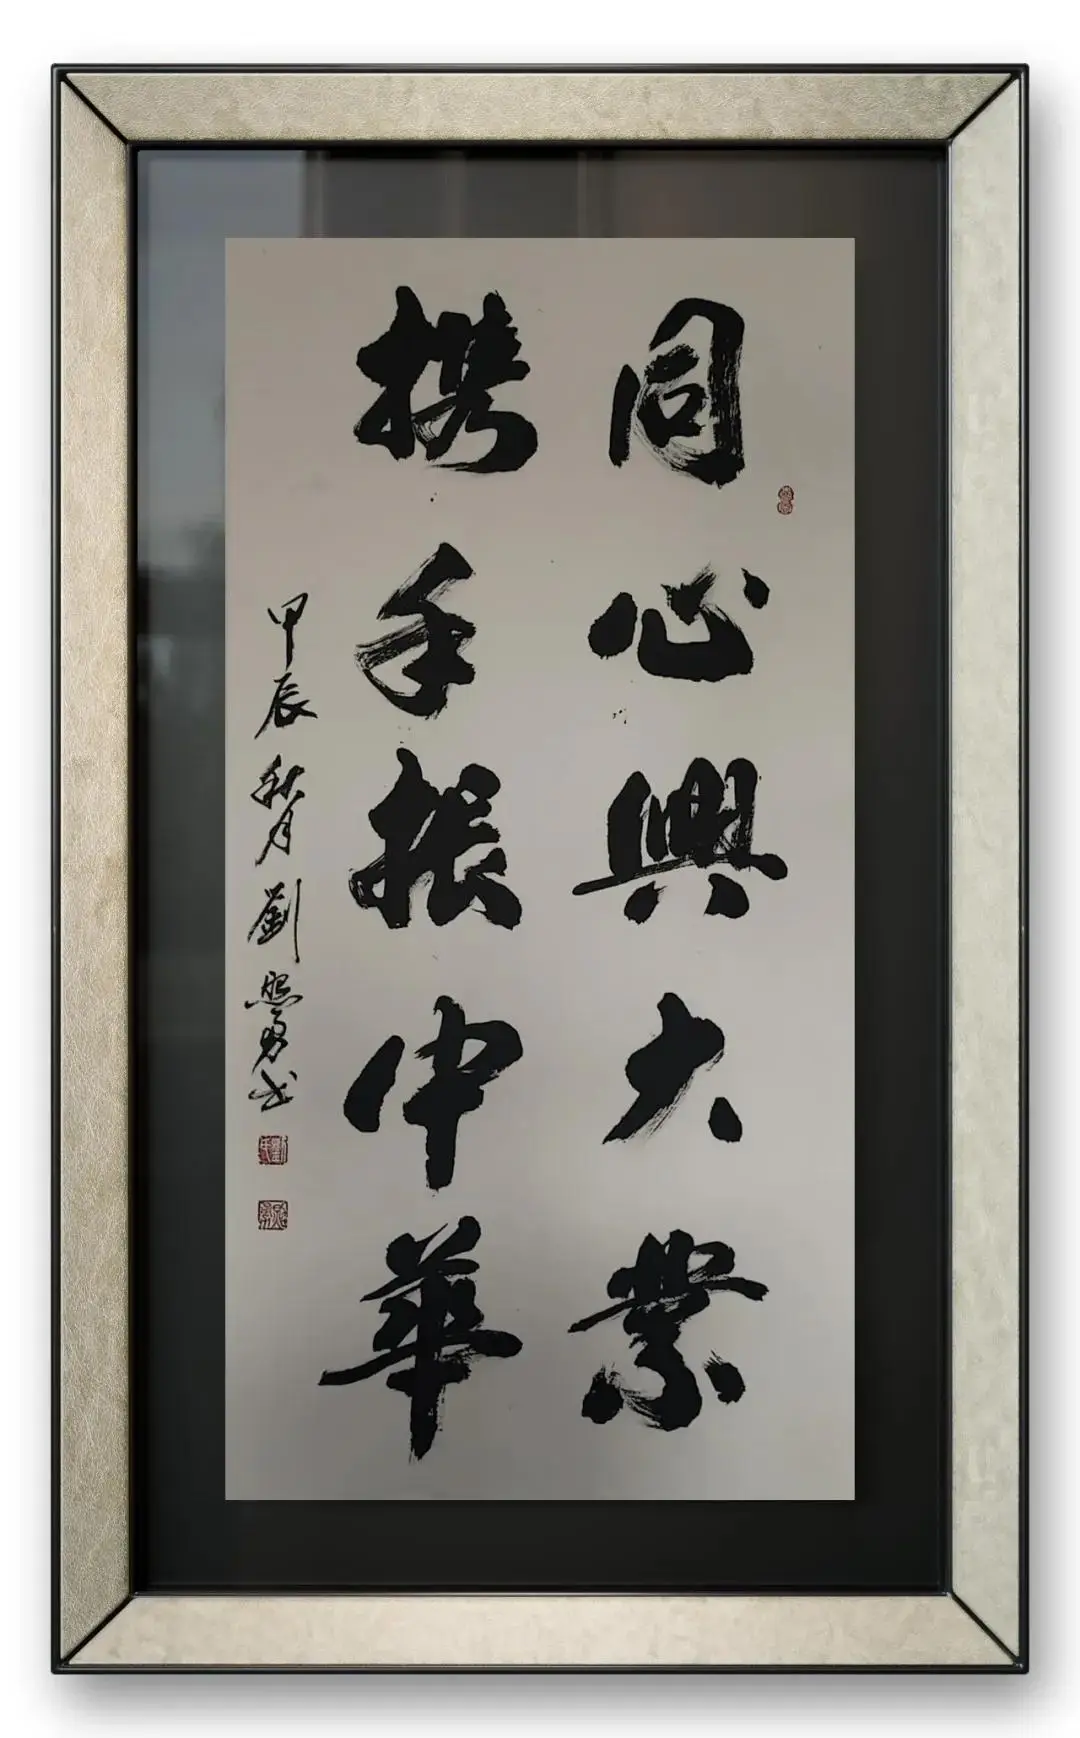 同心興大業
携手振中華
甲辰秋月劉熙勇书